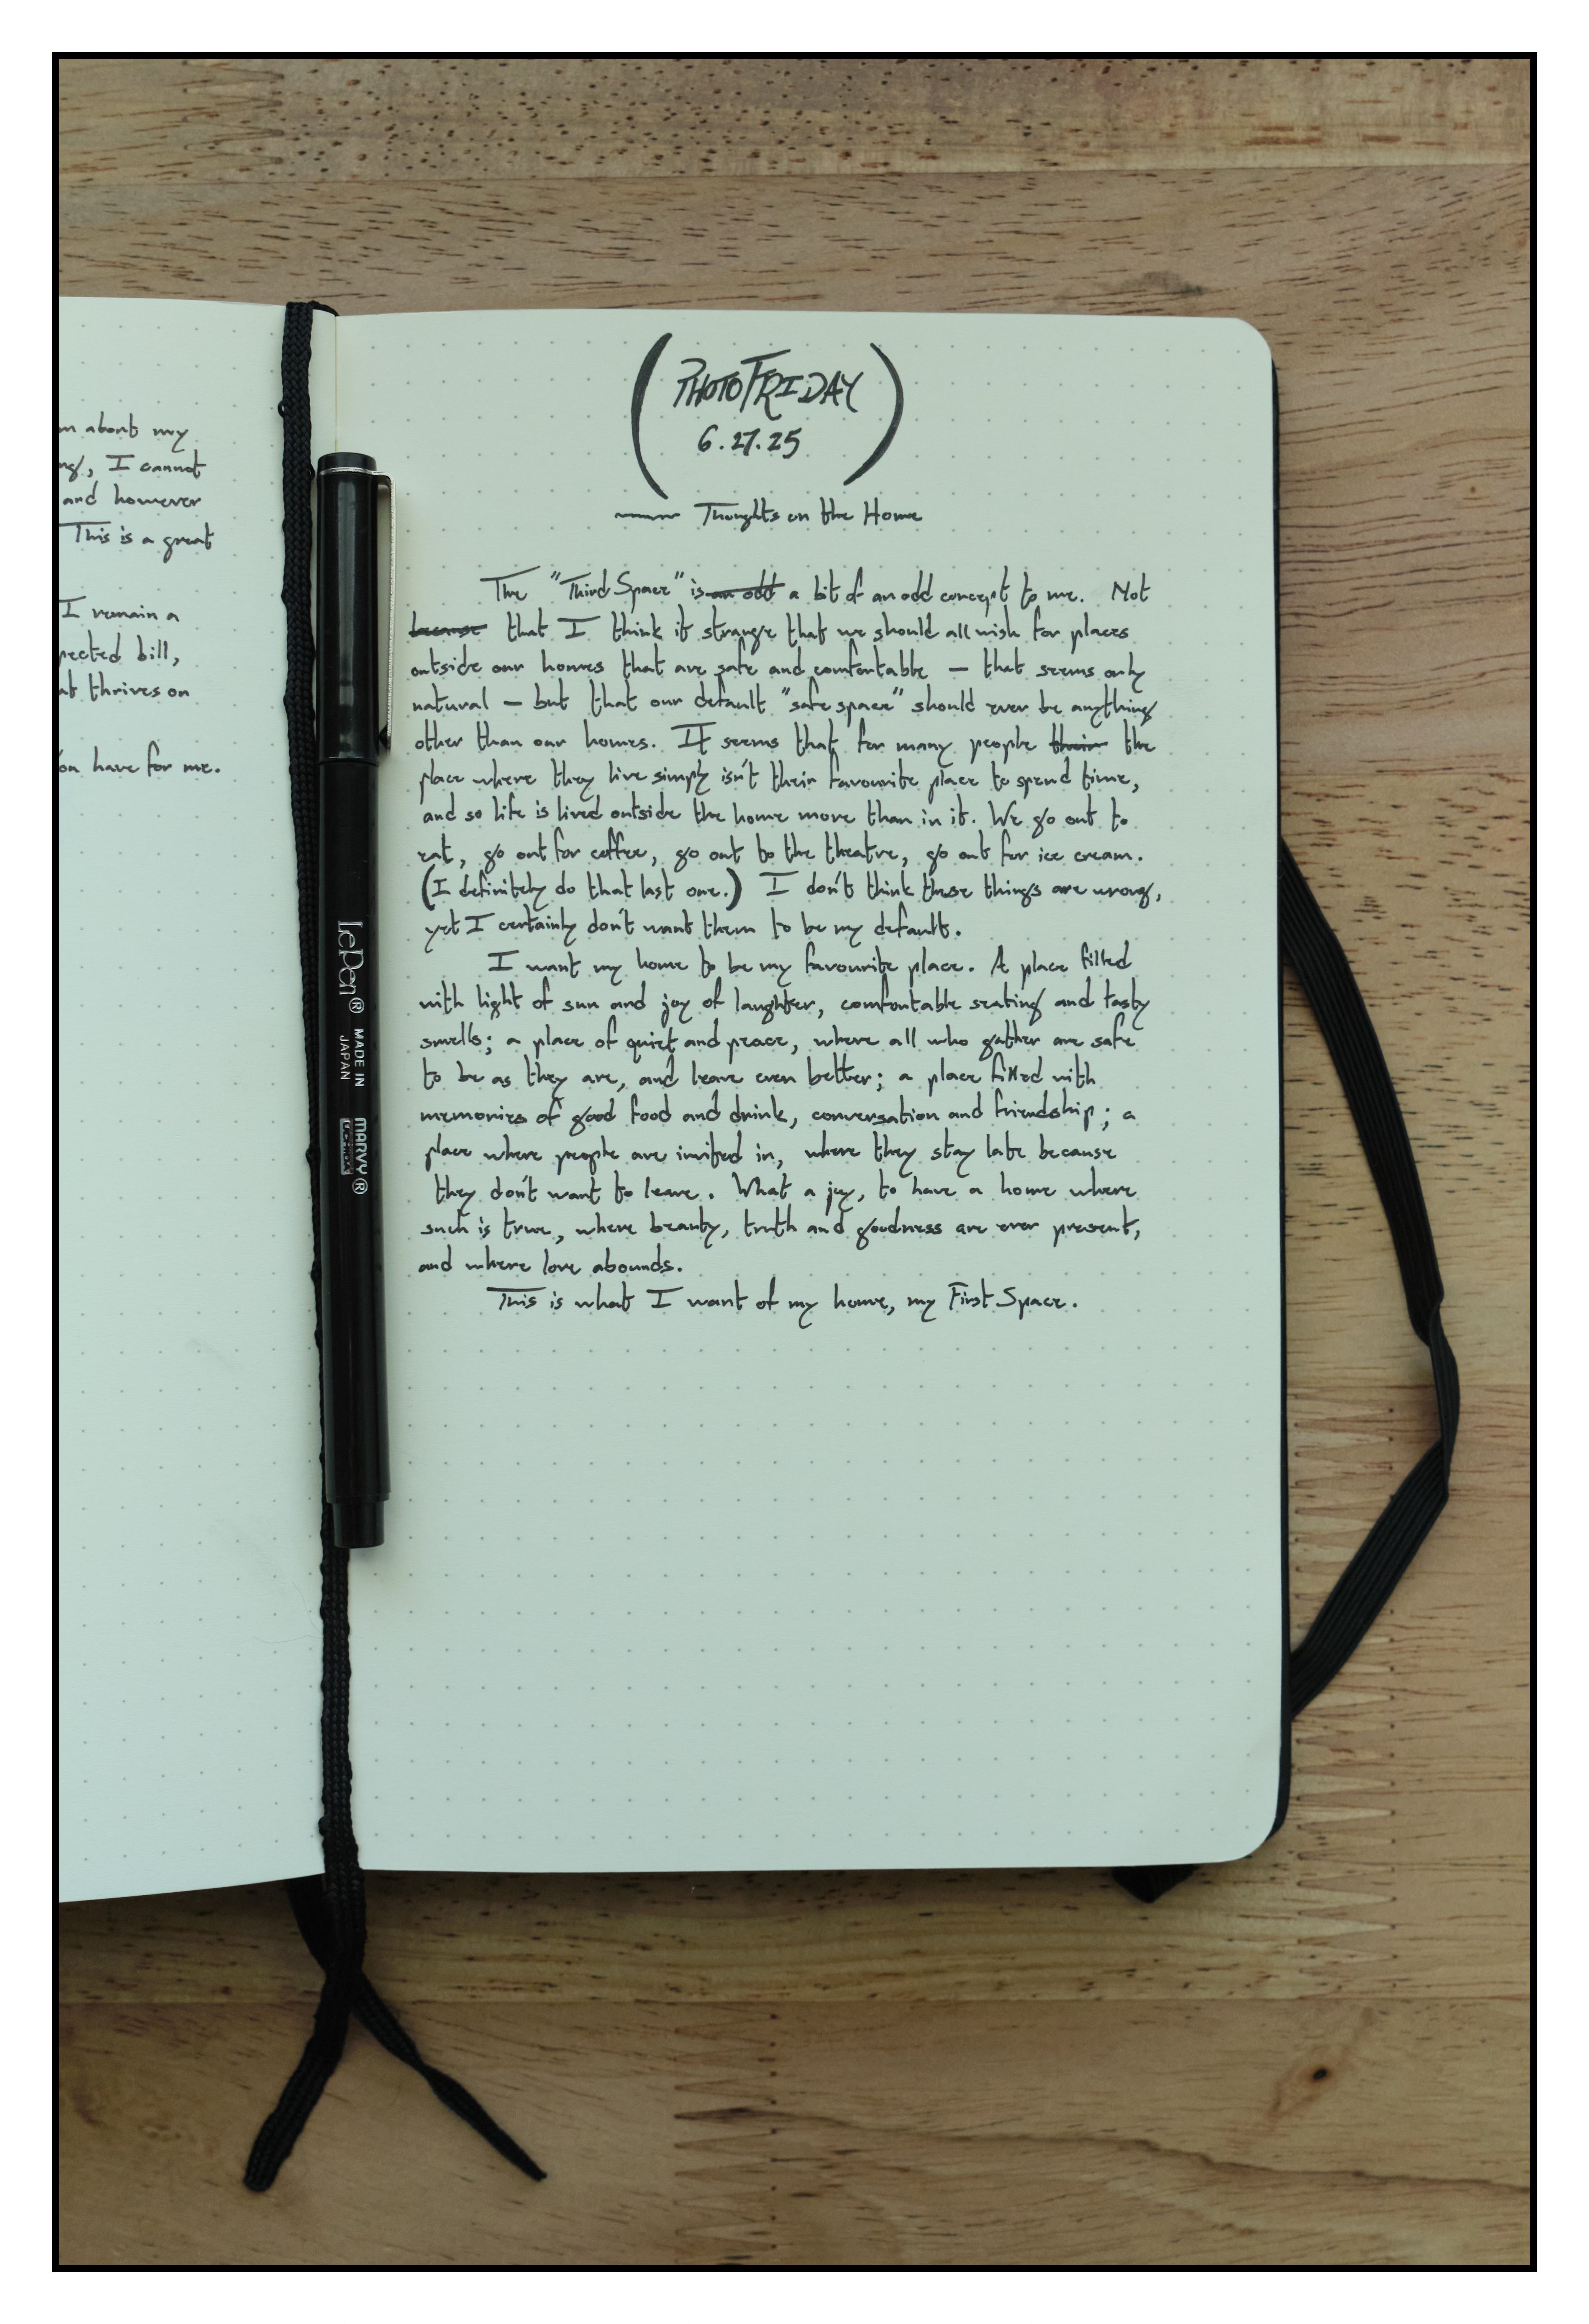 m about my
ng, I cannot
and however
This is a great
I remain a
pected bill,
at thrives on
ou have for me.
LePen® MADE IN JAPAN MARVY® UCHIDA
(PHOTOFRIDAY
6.27.25)
Thoughts on the Home
The "Third Space" is an odd a bit of an odd concept to me. Not
because that I think it strange that we should all wish for places
outside our homes that are safe and comfortable — that seems only
natural — but that our default "safe space" should ever be anything
other than our homes. It seems that for many people their the
place where they live simply isn't their favourite place to spend time,
and so life is lived outside the home more than in it. We go out to
eat, go out for coffee, go out to the theatre, go out for ice cream.
(I definitely do that last one.) I don't think these things are wrong,
yet I certainly don't want them to be my default.
I want my home to be my favourite place. A place filled
with light of sun and joy of laughter, comfortable seating and tasty
smells; a place of quiet and peace, where all who gather are safe
to be as they are, and leave even better; a place filled with
memories of good food and drink, conversation and friendship; a
place where people are invited in, where they stay late because
they don't want to leave. What a joy, to have a home where
such is true, where beauty, truth and goodness are ever present,
and where love abounds.
This is what I want of my home, my First Space.